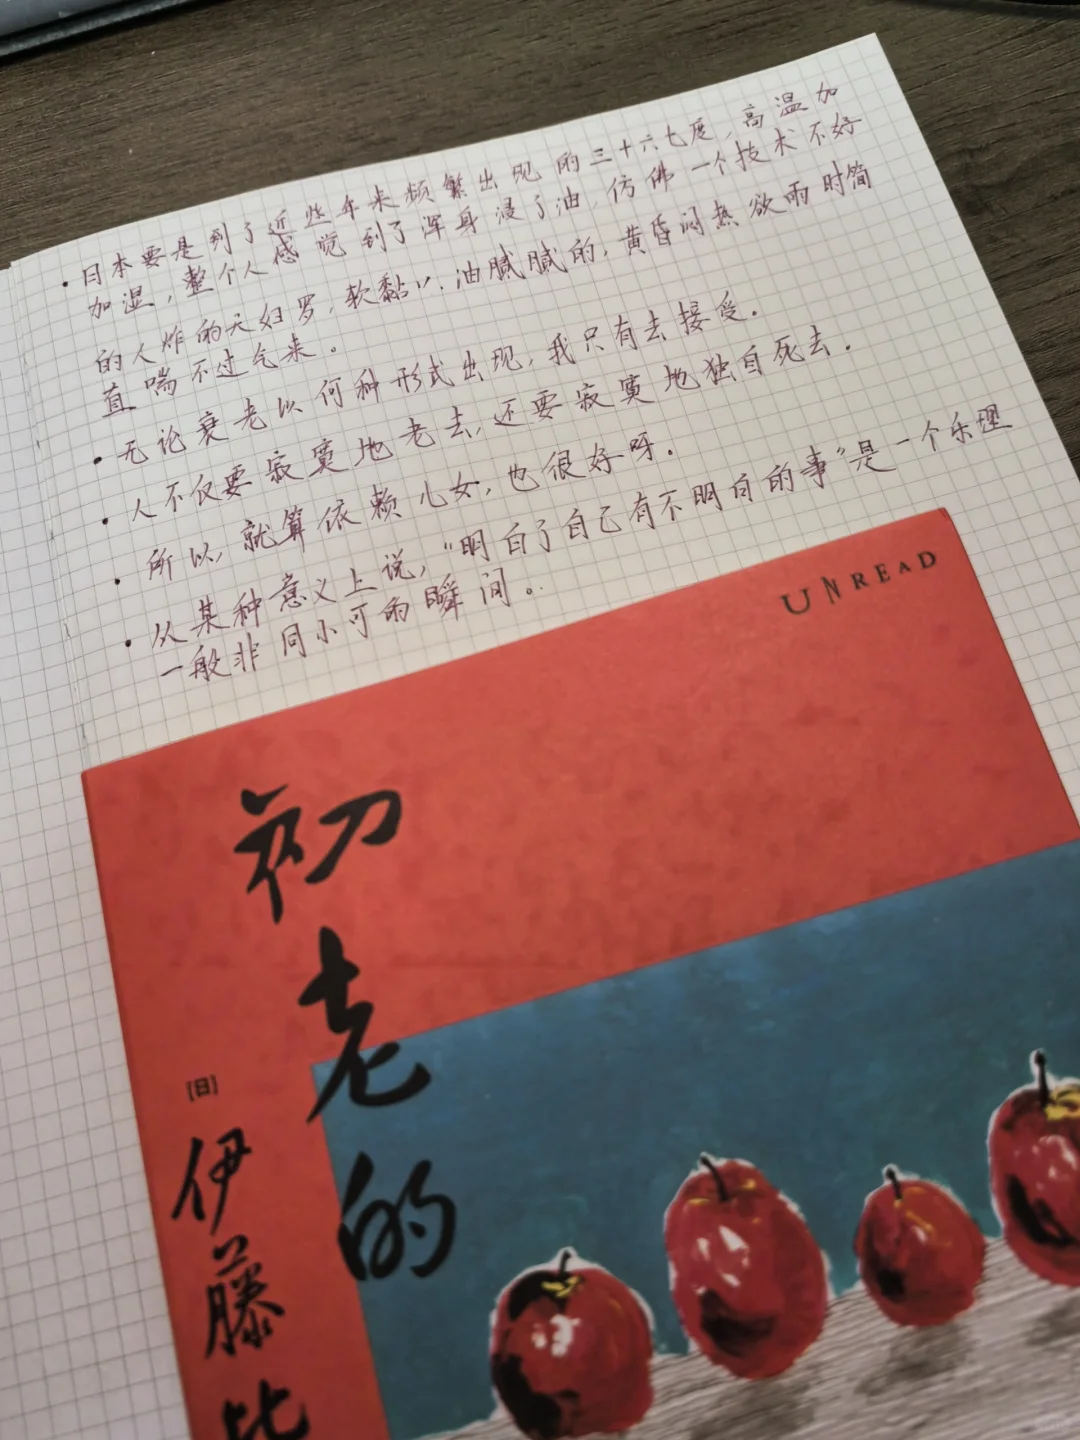 ·日本要是到了近些年来频繁出现的三十六七度,高温加
加湿,整个人感觉到了浑身浸了油,仿佛一个技术不好
的人炸的天妇罗,软黏",油腻腻的,黄昏闷热欲雨时简
直喘不过气来。
·无论衰老以何种形式出现,我只有去接受.
·人不仅要寂寞地老去,还要寂寞地独自死去.
·所以,就算依赖儿女,也很好呀.
·从某种意义上说,“明白了自己有不明白的事”是一个乐理
一般非同小可的瞬间。
UNREAD
初老的
[日]
伊藤比